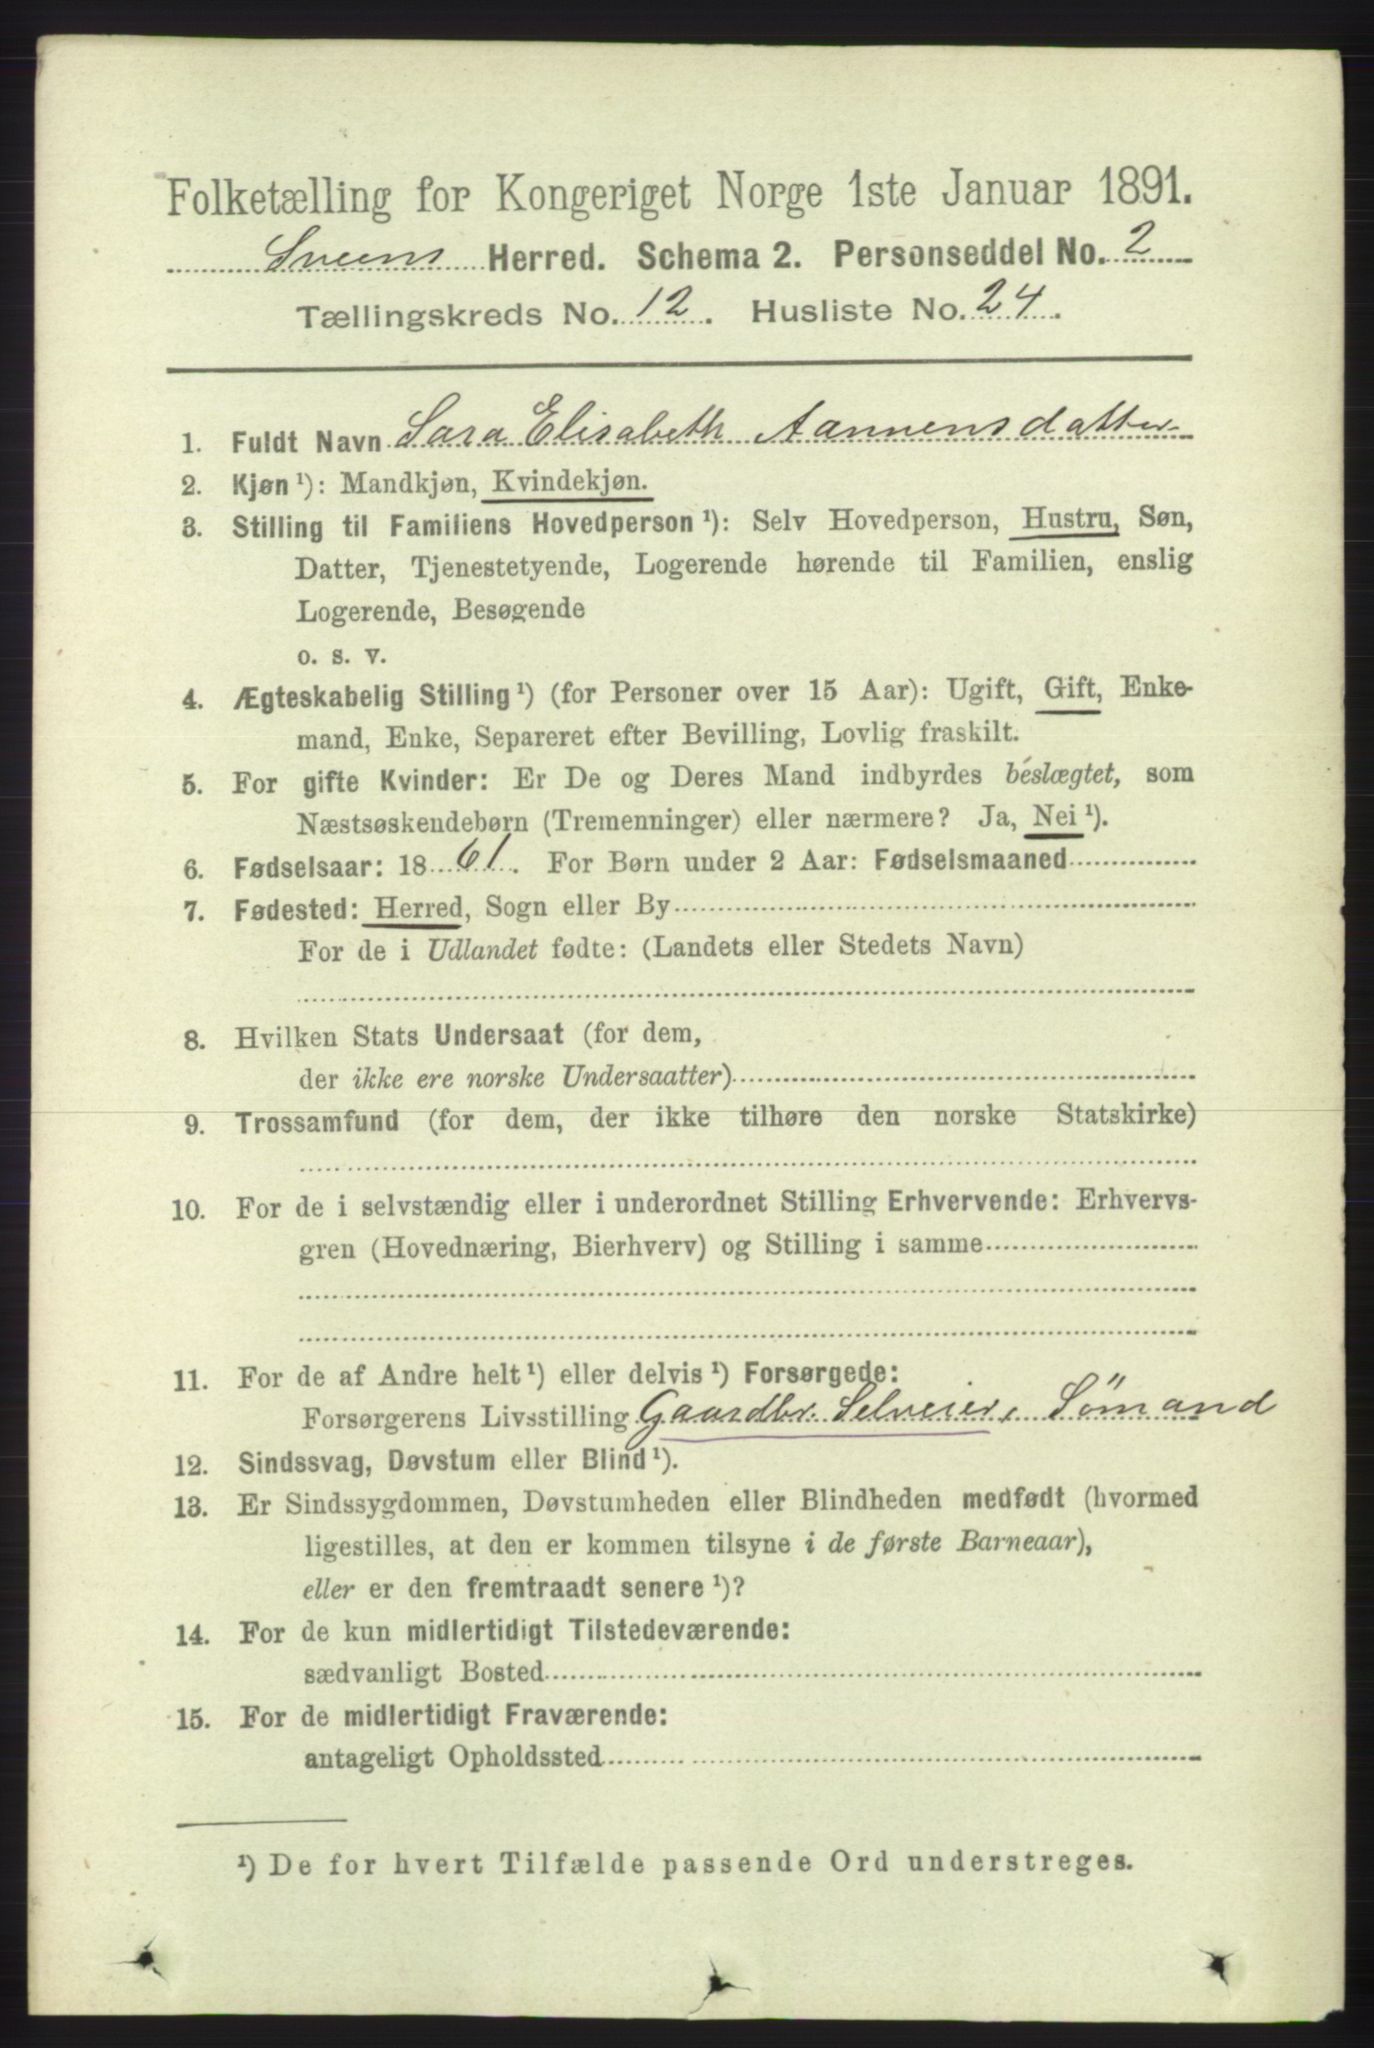 Folketælling for Kongeriget Norge 1ste Januar 1891.
Sveens Herred. Schema 2. Personseddel No. 2
Tællingskreds No. 12. Husliste No. 24.
1. Fuldt Navn Sara Elisabeth Aamensdatter
2. Kjøn ¹): Mandkjøn, Kvindekjøn.
3. Stilling til Familiens Hovedperson ¹): Selv Hovedperson, Hustru, Søn,
Datter, Tjenestetyende, Logerende hørende til Familien, enslig
Logerende, Besøgende
o. s. v.
4. Ægteskabelig Stilling ¹) (for Personer over 15 Aar): Ugift, Gift, Enke-
mand, Enke, Separeret efter Bevilling, Lovlig fraskilt.
5. For gifte Kvinder: Er De og Deres Mand indbyrdes beslægtet, som
Næstsøskendebørn (Tremenninger) eller nærmere? Ja, Nei ¹).
6. Fødselsaar: 1861. For Børn under 2 Aar: Fødselsmaaned
7. Fødested: Herred, Sogn eller By
For de i Udlandet fødte: (Landets eller Stedets Navn)
8. Hvilken Stats Undersaat (for dem,
der ikke ere norske Undersaatter)
9. Trossamfund (for dem, der ikke tilhøre den norske Statskirke)
10. For de i selvstændig eller i underordnet Stilling Erhvervende: Erhvervs-
gren (Hovednæring, Bierhverv) og Stilling i samme
11. For de af Andre helt ¹) eller delvis ¹) Forsørgede:
Forsørgerens Livsstilling Gaardbr. Selveier, Sömand
12. Sindssvag, Døvstum eller Blind ¹).
13. Er Sindssygdommen, Døvstumheden eller Blindheden medfødt (hvormed
ligestilles, at den er kommen tilsyne i de første Barneaar),
eller er den fremtraadt senere ¹)?
14. For de kun midlertidigt Tilstedeværende:
sædvanligt Bosted
15. For de midlertidigt Fraværende:
antageligt Opholdssted
¹) De for hvert Tilfælde passende Ord understreges.